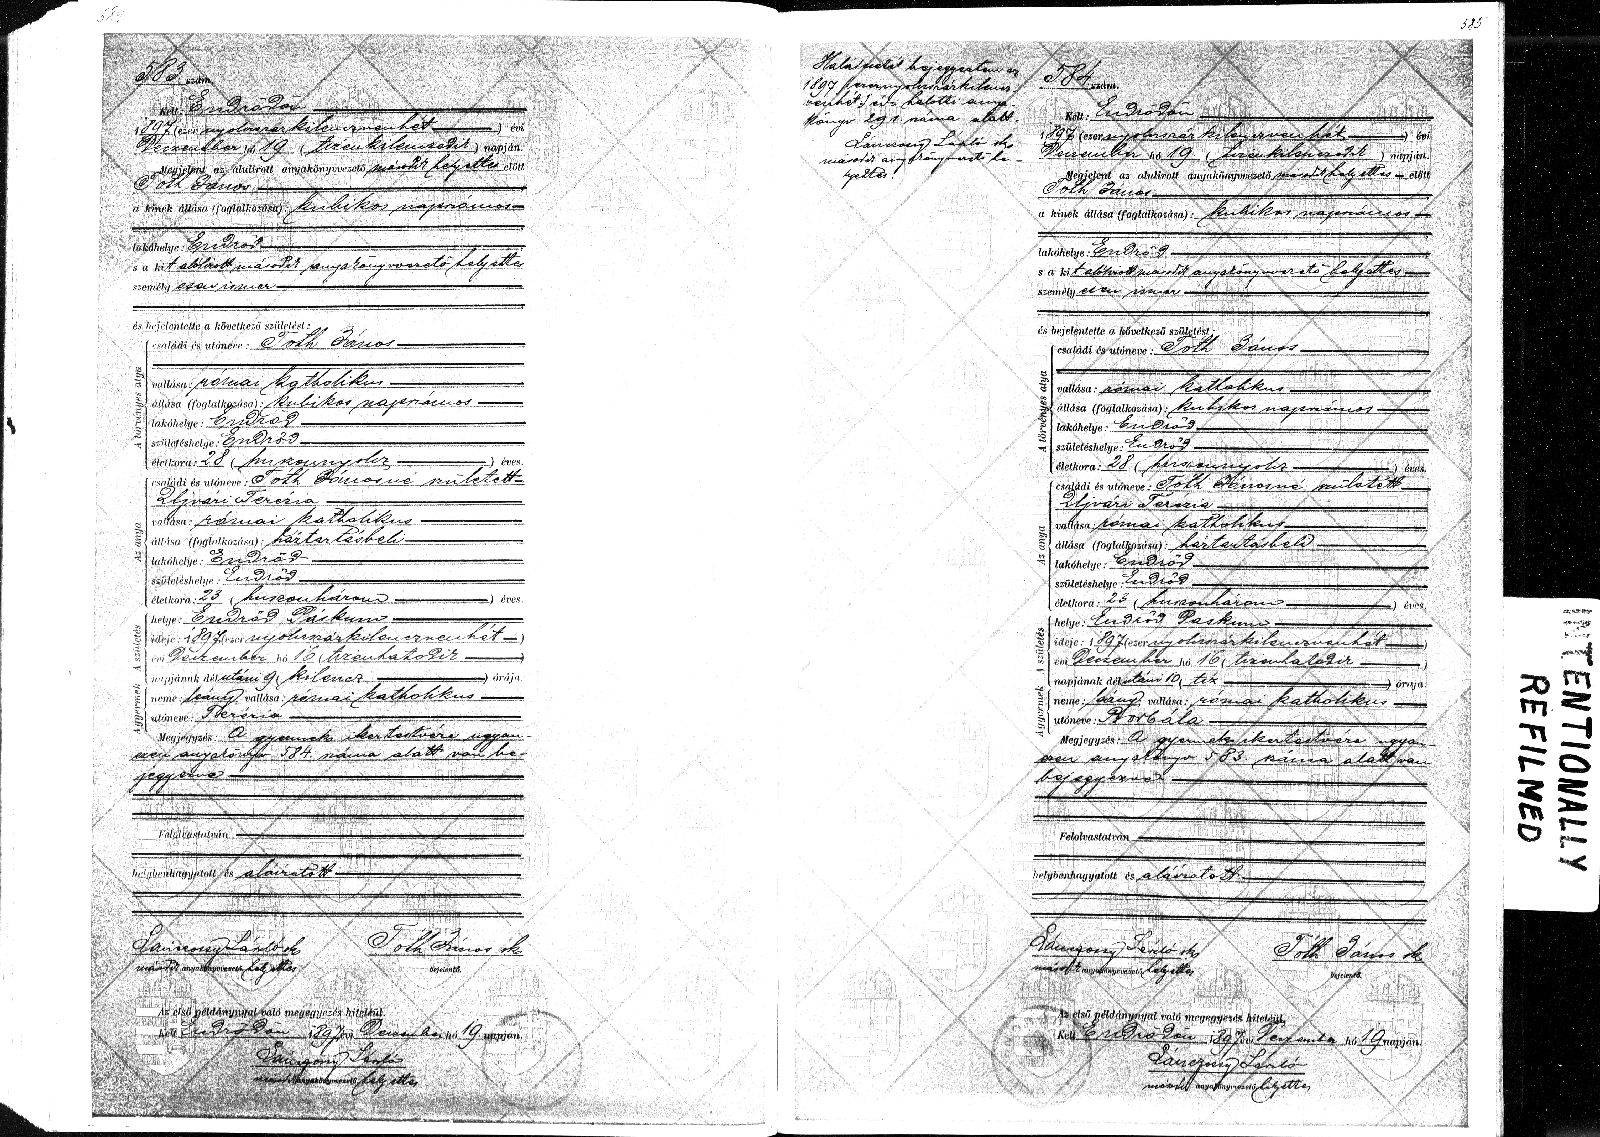 583 szám.
Kelt: Endrődön
1897 (ezer nyolczszázkilenczvenhét) évi
Deczember hó 19 (tizenkilenczedik) napján.
Megjelent az alulirott anyakönyvvezető második helyettes előtt
Tóth János
a kinek állása (foglalkozása): kubikos napszámos
lakóhelye: Endrőd
s a kit alólirott második anyakönyvvezető helyettes
személyesen ismer
és bejelentette a következő születést:
A törvényes atya
családi és utóneve: Tóth János
vallása: római katholikus
állása (foglalkozása): kubikos napszámos
lakóhelye: Endrőd
születéshelye: Endrőd
életkora: 28 (huszonnyolcz) éves.
Az anya
családi és utóneve: Tóth Jánosné született
Ujvári Terézia
vallása: római katholikus
állása (foglalkozása): háztartásbeli
lakóhelye: Endrőd
születéshelye: Endrőd
életkora: 23 (huszonhárom) éves.
A születés
helye: Endrőd Páskum
ideje: 1897 (ezer nyolczszázkilenczvenhét)
évi Deczember hó 16 (tizenhatodik)
napjának délutáni 9 (kilencz) órája.
A gyermek
neme: leány, vallása: római katholikus
utóneve: Terézia
Megjegyzés: A gyermek ikertestvére ugyan-
ezen anyakönyv 584. száma alatt van be-
jegyezve
Felolvastatván
helybenhagyatott és aláiratott
Lanczossy László sk
második anyakönyvvezető helyettes
Tóth János sk
bejelentő.
Az első példánynyal való megegyezés hiteléül,
Kelt Endrődön 1897 évi Deczember hó 19 napján.
Lanczossy László
második anyakönyvvezető helyettes
585
Halálesetét bejegyeztem az
1897 (ezernyolczszázkilencz
venhét) évi halotti anya-
könyv 291 száma alatt.
Lanczossy László sk
második anyakönyvvezető he-
lyettes.
584 szám.
Kelt: Endrődön
1897 (ezer nyolczszázkilenczvenhét) évi
Deczember hó 19 (tizenkilenczedik) napján.
Megjelent az alulirott anyakönyvvezető második helyettes előtt
Tóth János
a kinek állása (foglalkozása): kubikos napszámos
lakóhelye: Endrőd
s a kit alólirott második anyakönyvvezető helyettes
személyesen ismer
és bejelentette a következő születést:
A törvényes atya
családi és utóneve: Tóth János
vallása: római katholikus
állása (foglalkozása): kubikos napszámos
lakóhelye: Endrőd
születéshelye: Endrőd
életkora: 28 (huszonnyolcz) éves.
Az anya
családi és utóneve: Tóth Jánosné született
Ujvári Terézia
vallása: római katholikus
állása (foglalkozása): háztartásbeli
lakóhelye: Endrőd
születéshelye: Endrőd
életkora: 23 (huszonhárom) éves.
A születés
helye: Endrőd Páskum
ideje: 1897 (ezer nyolczszázkilenczvenhét)
évi Deczember hó 16 (tizenhatodik)
napjának délutáni 10 (tíz) órája.
A gyermek
neme: leány, vallása: római katholikus
utóneve: Borbála
Megjegyzés: A gyermek ikertestvére ugyan-
ezen anyakönyv 583. száma alatt van
bejegyezve
Felolvastatván
helybenhagyatott és aláiratott
Lanczossy László sk
második anyakönyvvezető helyettes
Tóth János sk
bejelentő.
Az első példánynyal való megegyezés hiteléül,
Kelt Endrődön 1897 évi Deczember hó 19 napján.
Lanczossy László
második anyakönyvvezető helyettes
INTENTIONALLY
REFILMED